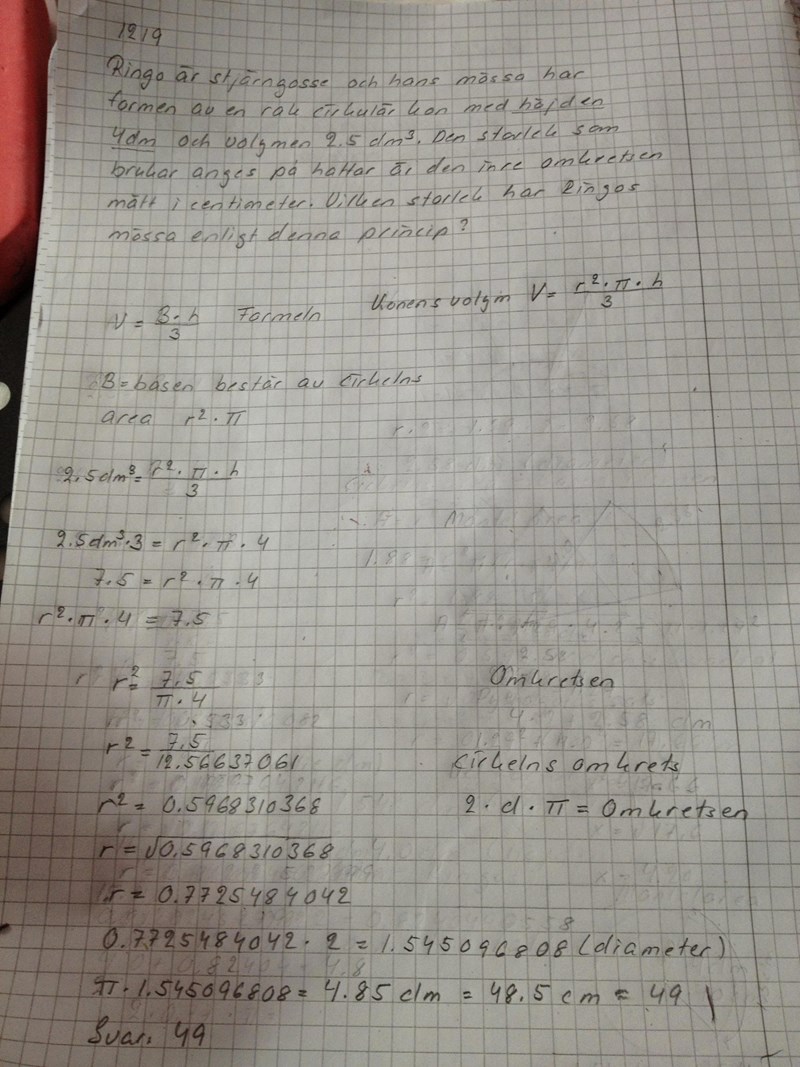 1219
Ringo är stjärngosse och hans mössa har
formen av en rak cirkulär kon med höjden
4dm och volymen 2.5 dm³. Den storlek som
brukar anges på hattar är den inre omkretsen
mätt i centimeter. Vilken storlek har Ringos
mössa enligt denna princip?
V = B·h/3 Formeln Konens volym V = r²·π·h/3
B = basen består av cirkelns
area r²·π
2.5dm³ = r²·π·h/3
2.5dm³·3 = r²·π·4
7.5 = r²·π·4
r²·π·4 = 7.5
r² = 7.5/π·4
r² = 7.5/12.56637061
r² = 0.5968310368
r = √0.5968310368
r = 0.7725484042
Omkretsen
Cirkelns omkrets
2·d·π = Omkretsen
0.7725484042·2 = 1.545096808 (diameter)
π·1.545096808 = 4.85 dm = 48.5 cm = 49
Svar. 49